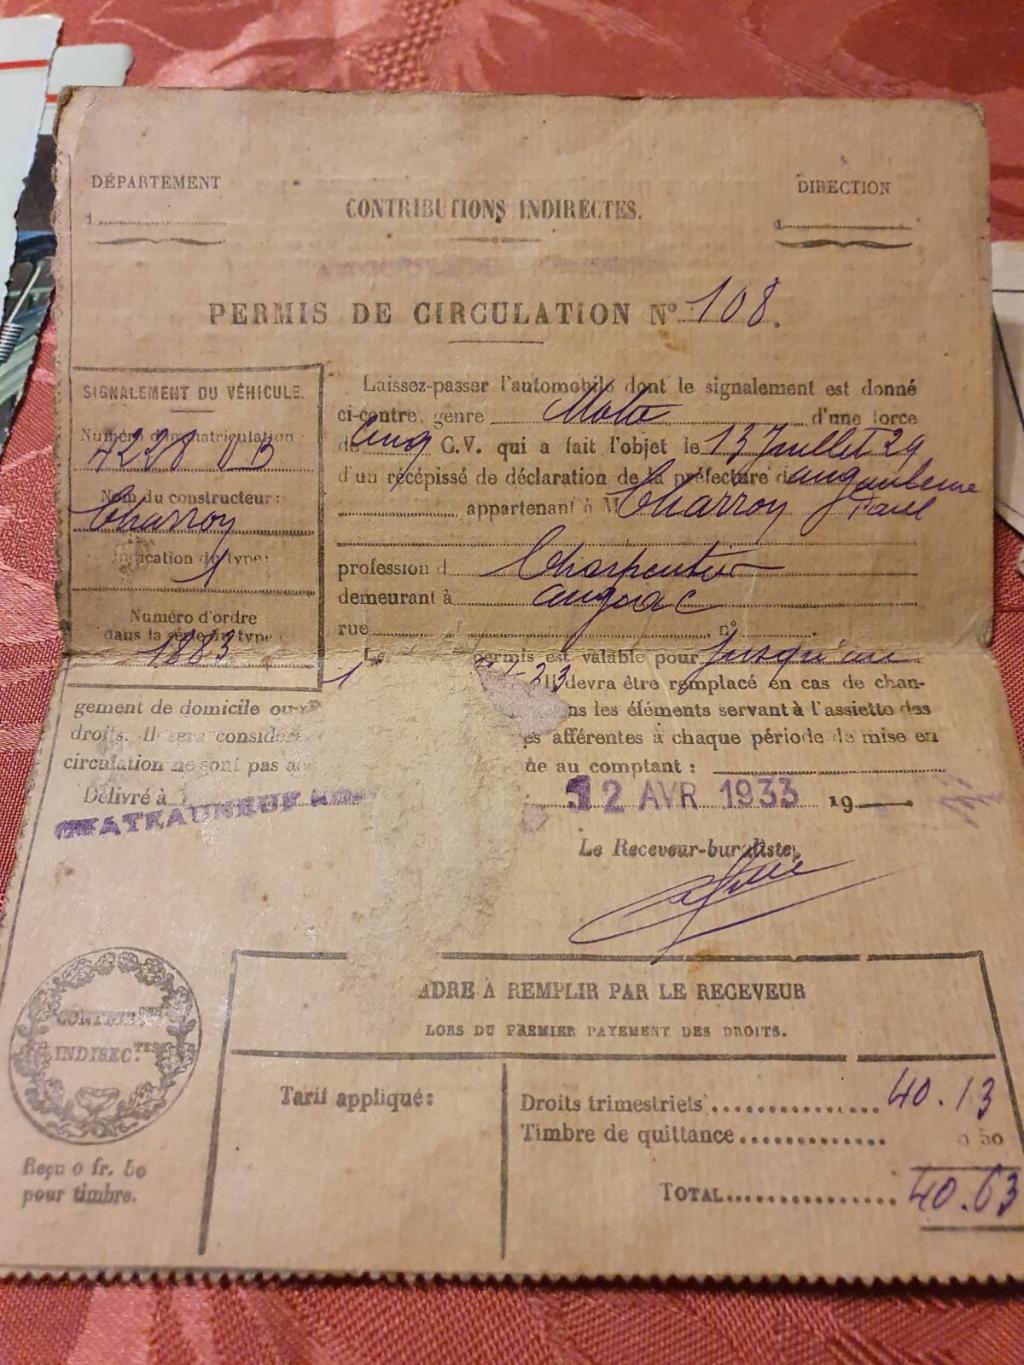 DÉPARTEMENT
DIRECTION
d
d
CONTRIBUTIONS INDIRECTES.
PERMIS DE CIRCULATION N° 108.
SIGNALEMENT DU VÉHICULE.
Numéro d'immatriculation:
4238 VB
Nom du constructeur:
Charroy
Indication du type:
1
Numéro d'ordre
dans la série du type:
1883
Laissez-passer l'automobile dont le signalement est donné
ci-contre, genre Moto d'une force
de Cinq C.V. qui a fait l'objet le 13 Juillet 29
d'un récépissé de déclaration de la préfecture d'angouleme
appartenant à M Charroy Paul
profession d Charpentier
demeurant à angeac
rue n°
Le permis est valable pour Jusqu'au
1 23 Il devra être remplacé en cas de chan-
gement de domicile ou ns les éléments servant à l'assiette des
droits. Il sera considéré s afférentes à chaque période de mise en
circulation ne sont pas ac ne au comptant:
Délivré à CHATEAUNEUF 12 AVR 1933 19
Le Receveur-buraliste,
CONTRIB.ONS
INDIREC.TES
Reçu 0 fr. 50
pour timbre.
ADRE À REMPLIR PAR LE RECEVEUR
LORS DU PREMIER PAYEMENT DES DROITS.
Tarif appliqué:
Droits trimestriels 40.13
Timbre de quittance 0 50
TOTAL 40.63